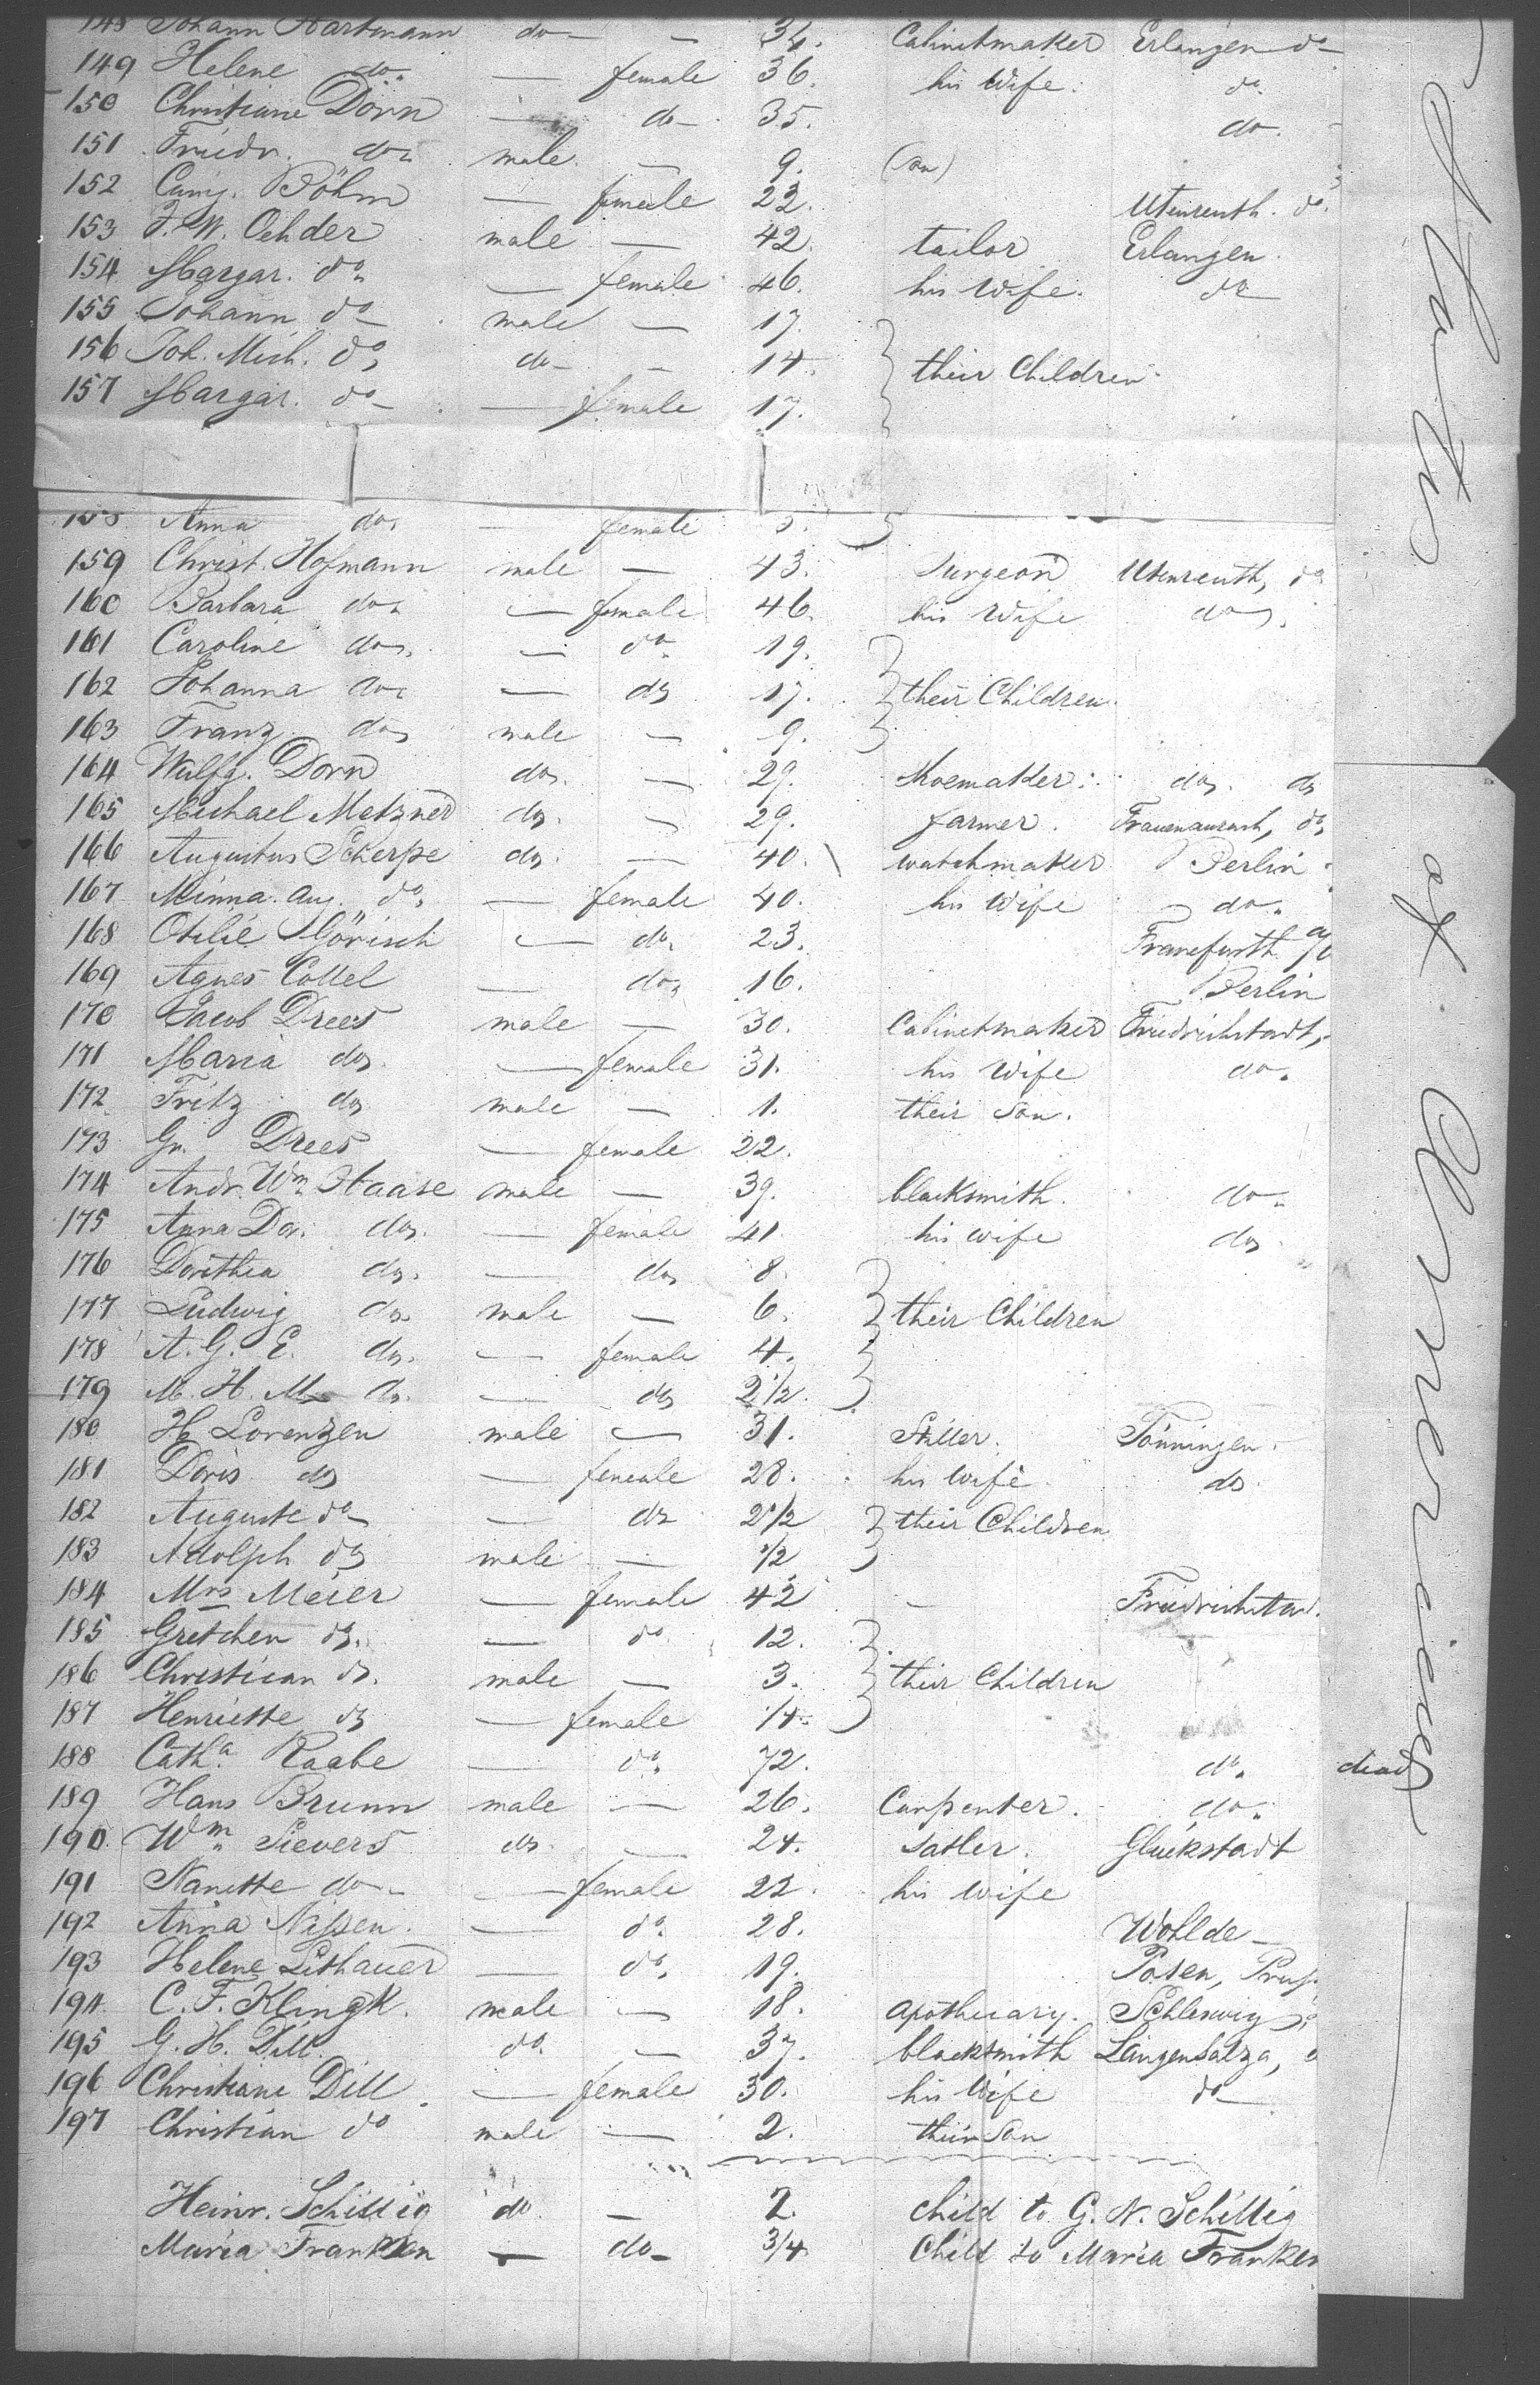 148 Johann Hartmann do — 34. Cabinetmaker Erlangen do
149 Helene do. — female 36. his Wife. do
150 Christiane Dorn — do — 35. do.
151 Friedr. do. male. — 9. (son)
152 Cunig. Böhm — female 22. Utenreuth. do.
153 F. W. Oehder male — 42. tailor Erlangen.
154 Margar. do. — female 46. his Wife. do
155 Johann do male — 17.
156 Joh. Mich. do do — 14. their Children
157 Margar. do — female 17.
158 Anna do. — female 5.
159 Christ. Hofmann male — 43. Surgeon Utenreuth, do
160 Barbara do. — female 46. his Wife do.
161 Caroline do. — do. 19.
162 Johanna do. — do 17. their Children.
163 Franz do male — 9.
164 Wulfg. Dorn do. — 29. Shoemaker. do. do
165 Michael Metzner do. — 29. farmer. Frauenaurach, do
166 Augustus Scherpe do. — 40. watchmaker Berlin
167 Minna. Aug. do. — female 40. his Wife do.
168 Otilie Görisch — do. 23. Francfurth a/o
169 Agnes Collel — do. 16. Berlin
170 Jacob Drees male — 30. Cabinetmaker Friedrichstadt,
171 Maria do. — female 31. his Wife do.
172 Fritz do male — 1. their Son.
173 Gr. Drees — female 22.
174 Andr. Wm Haase male — 39. blacksmith. do.
175 Anna Do. do. — female 41 his wife do.
176 Dorithea do. — do 8.
177 Ludwig do. male — 6. their Children
178 A. G. E. do. — female 4.
179 M. H. M. do. — do 2 1/2.
180 H. Lorenzen male — 31. Tönningen.
181 Doris do — female 28. his wife do.
182 Auguste do — do 2 1/2 their Children
183 Adolph do male — 1/2
184 Mrs Meier — female 42 — Friedrichstad.
185 Gretchen do. — do. 12.
186 Christican do. male — 3. their Children
187 Henriette do — female 1/4.
188 Catha. Raabe — do. 72. do. dead
189 Hans Brunn male — 26. Carpenter. do.
190. Wm Sievers do. — 24. Satler. Glückstadt
191 Nanette do. — female 22. his wife
192 Anna Nissen. — do. 28. Wohlde —
193 Helene Lithauer — do. 19. Posen, Prus.
194. C. F. Klingk. male — 18. apothecary. Schleswig, do
195 G. H. Dill. do. — 37. blacksmith Langensalza,
196 Christiane Dill. — female 30. his Wife do
197 Christian do male — 2. their Son
Heinr. Schillig do — 2. child to G. N. Schillig
Maria Franken — do — 3/4 Child to Maria Franken
States of America